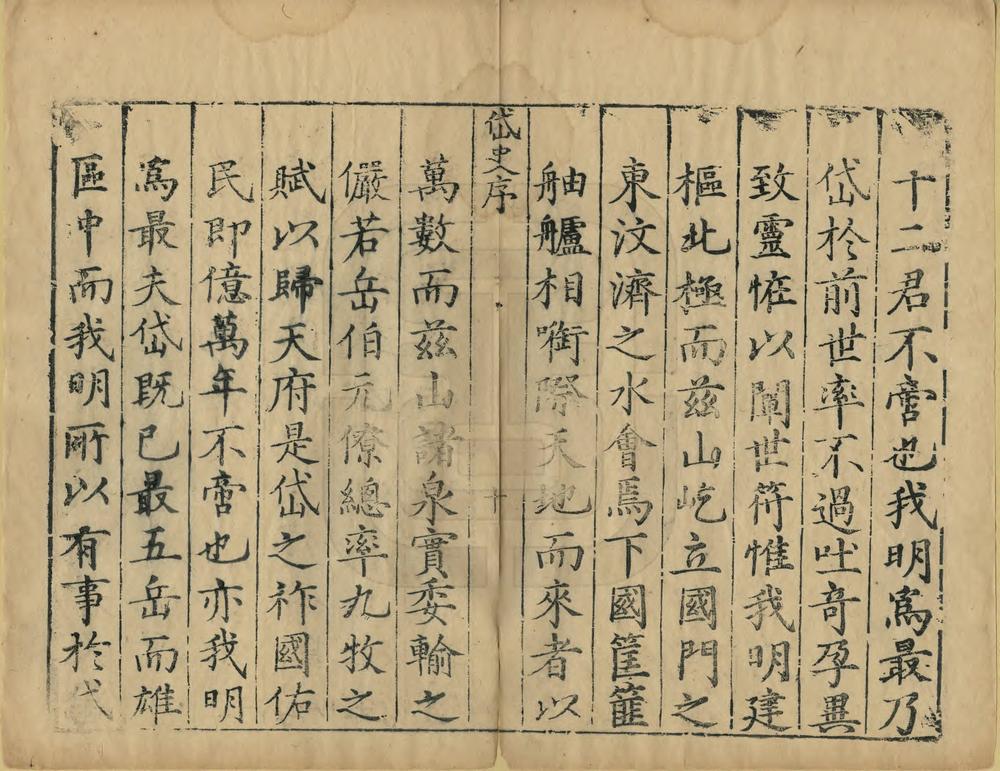 十二君不啻也我明為最乃
岱於前世率不過吐奇孕異
致靈恠以闡世符惟我明建
樞北極而茲山屹立國門之
東汶濟之水會焉下國筐篚
舳艫相㗸際天地而來者以
岱史序
十
萬數而茲山諸泉實委輸之
儼若岳伯元僚總率九牧之
賦以歸天府是岱之祚國佑
民即億萬年不啻也亦我明
為最夫岱既已最五岳而雄
區中而我明所以有事於岱